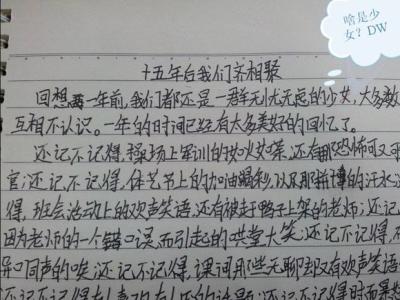 啥是少
女？DW
十五年后我们齐相聚
回想两一年前,我们都还是一群无忧无虑的少女,大多数
互相不认识。一年的时间已经有太多美好的回忆了。
还记不记得,操场上军训的
官;还记不记得,体艺节上的加油喝彩,以及那拼搏的汗水
得,班会活动上的欢声笑语,还有被赶鸭子上架的老师;还记
因为老师的一个错口误而引起的哄堂大笑;还记不记得,
异口同声的唉;还记不记得,课间那些无聊却又有欢声笑语
还记不记得